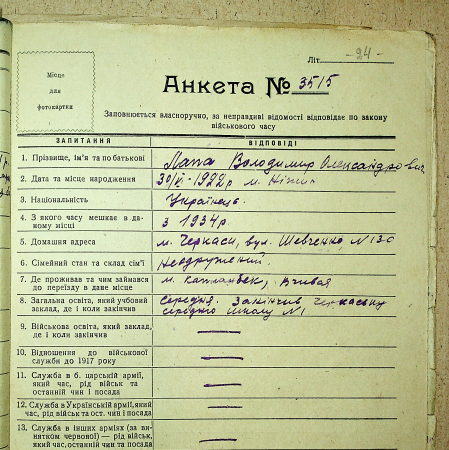 Літ. -24-
Місце
для
фотокартки
Анкета № 3515
Заповнюється власноручно, за неправдиві відомості відповідає по закону
військового часу
ЗАПИТАННЯ ВІДПОВІДІ
1. Прізвище, ім'я та по батькові Лапа Володимир Олександрович
2. Дата та місце народження 30/VI-1922р м. Ніжин
3. Національність Українець.
4. З якого часу мешкає в да-
ному місці з 1934 р.
5. Домашня адреса м. Черкаси, вул. Шевченко, № 130
6. Сімейний стан та склад сім'ї Неодружений.
7. Де проживав та чим займався
до переїзду в дане місце м.
8. Загальна освіта, який учбовий
заклад, де і коли закінчив Середня. Закінчив Черкаську
середню школу №1
9. Військова освіта, який заклад,
де і коли закінчив —
10. Відношення до військової
служби до 1917 року —
11. Служба в б. царській армії,
який час, рід військ та
останній чин і посада —
12. Служба в Українській армії, який
час, рід військ та ост. чин і посада —
13. Служба в інших арміях (за ви-
нятком червоної) — рід військ,
який час, останній чин та посада —